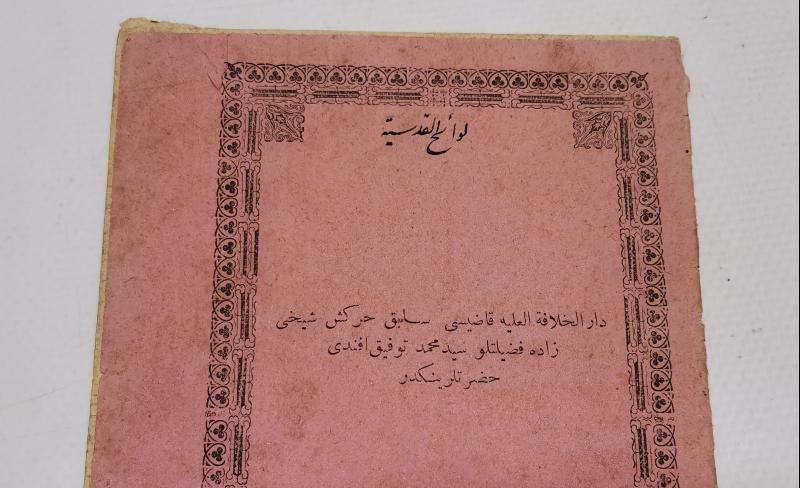 لوائح القدسیة
دار الخلافة العلیه قاضیسی سابق چرکش شیخی
زاده فضیلتلو سید محمد توفیق افندی
حضرتلرینکدر